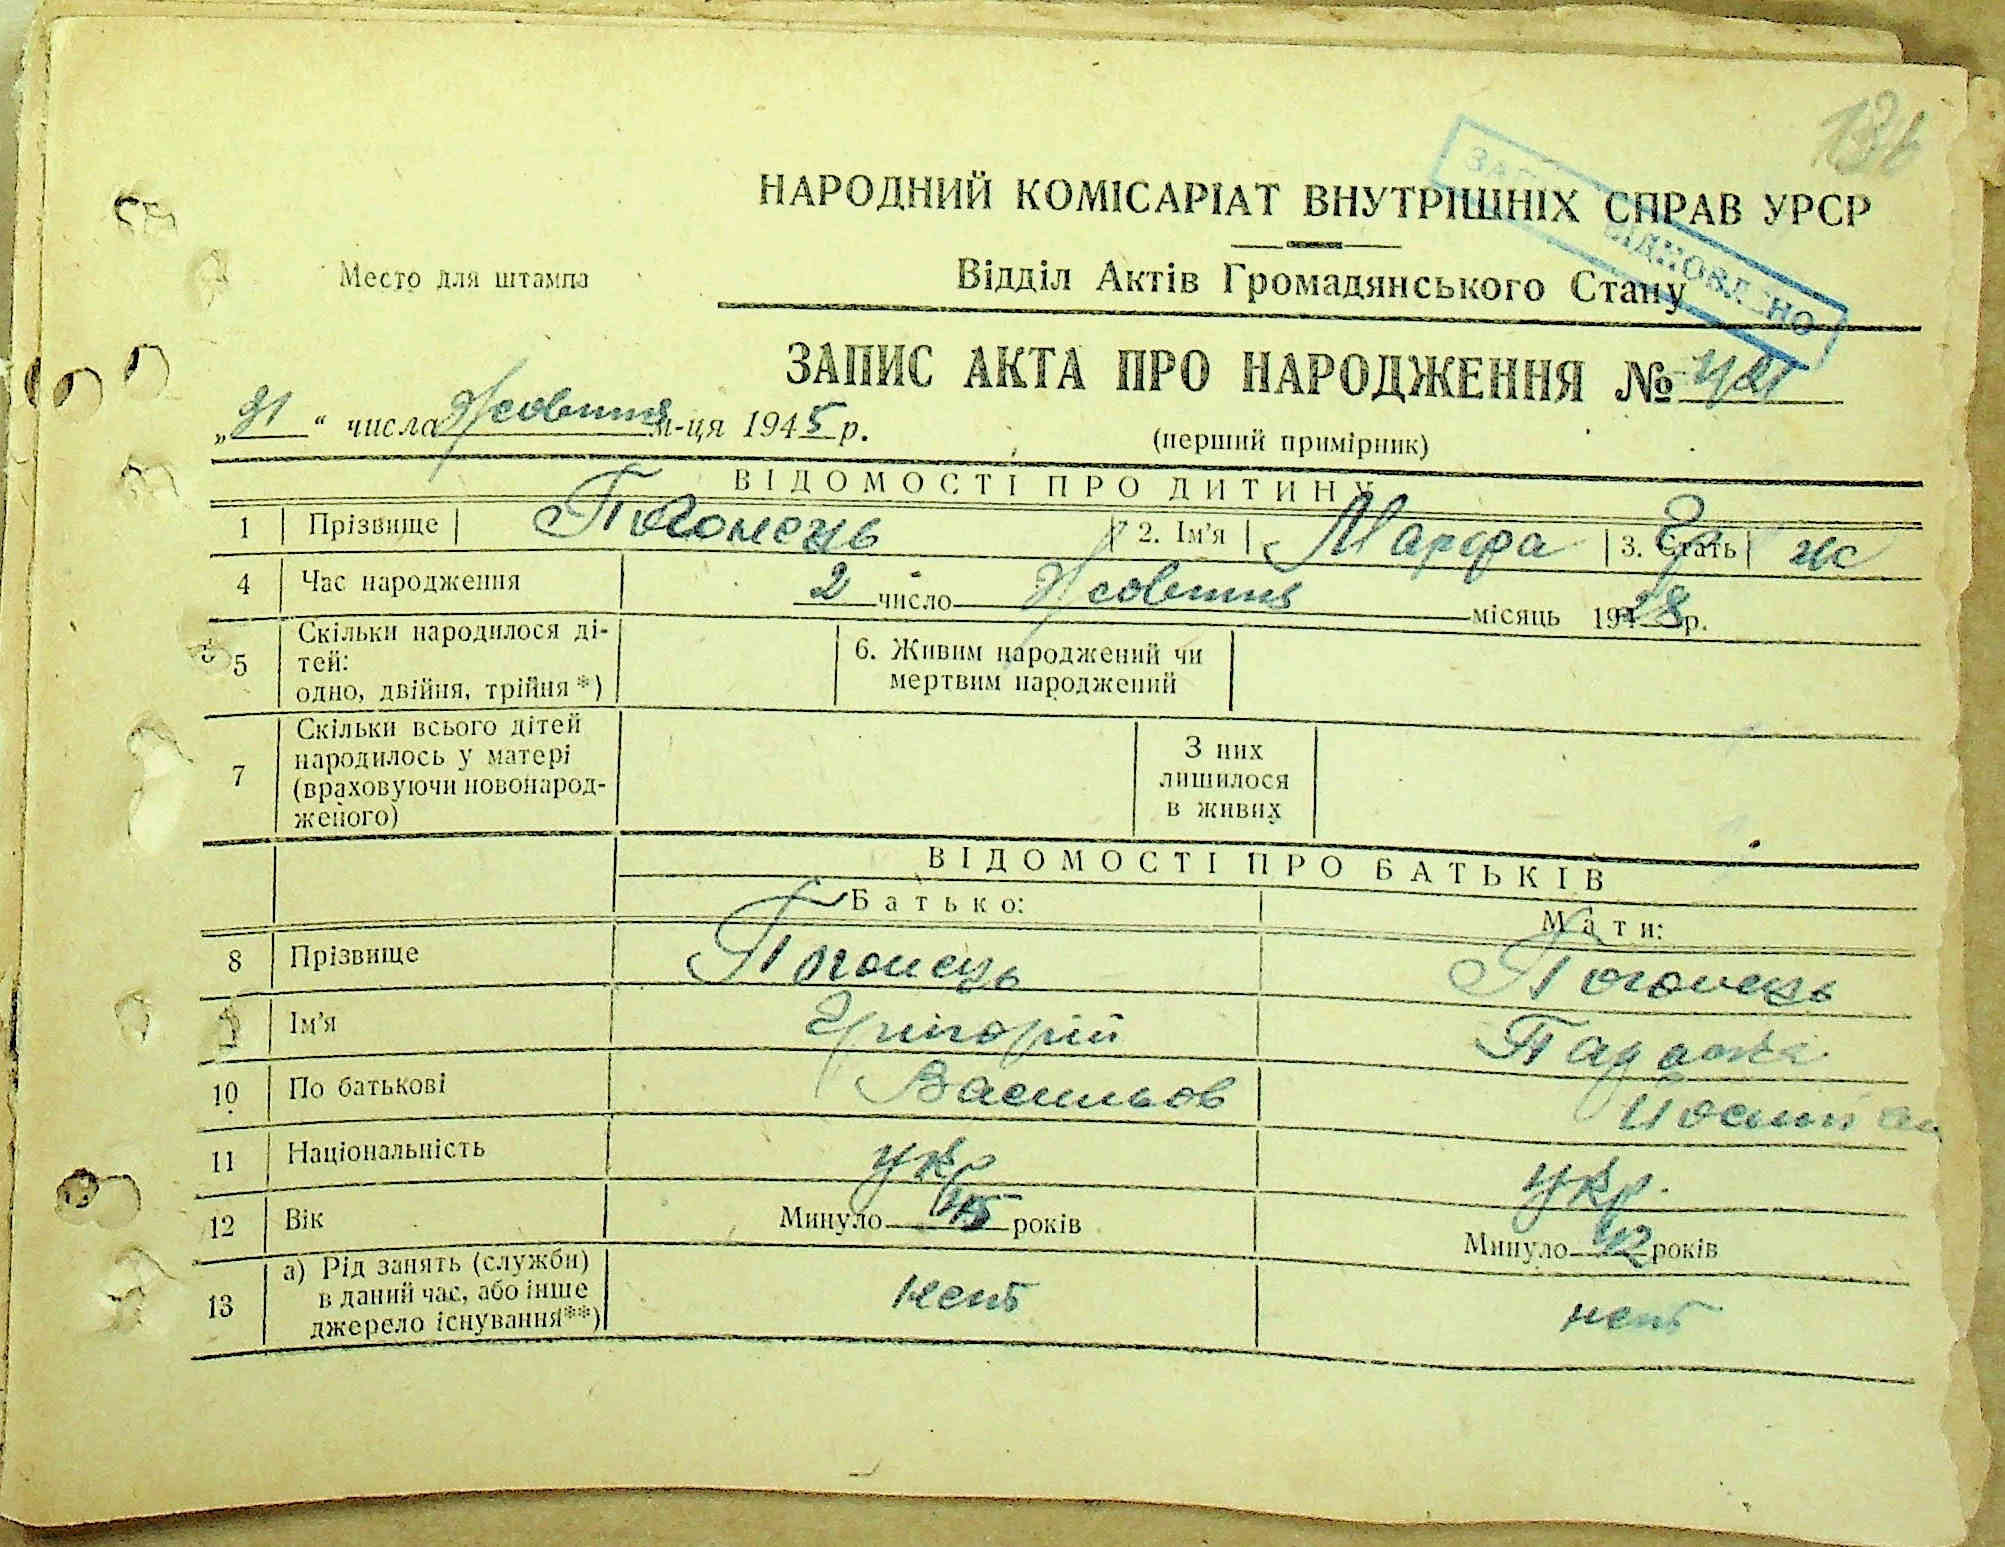 НАРОДНИЙ КОМІСАРІАТ ВНУТРІШНІХ СПРАВ УРСР
ВІДНОВЛЕНО
Место для штампа
Відділ Актів Громадянського Стану
ЗАПИС АКТА ПРО НАРОДЖЕННЯ №
„31“ числа Жовтня м-ця 1945 р.
(перший примірник)
ВІДОМОСТІ ПРО ДИТИНУ
1 Прізвище Погонець 2. Ім'я Марфа Гр 3. Стать ж
4 Час народження 2 число Жовтня місяць 1928 р.
5 Скільки народилося ді-
тей:
одно, двійня, трійня*)
6. Живим народжений чи
мертвим народжений
7 Скільки всього дітей
народилось у матері
(враховуючи новонарод-
женого)
З них
лишилося
в живих
ВІДОМОСТІ ПРО БАТЬКІВ
Батько: Мати:
8 Прізвище Погонець Погонець
9 Ім'я Григорій
10 По батькові Васильов
11 Національність укр укр.
12 Вік Минуло 45 років Минуло 42 років
13 а) Рід занять (служби)
в даний час, або інше
джерело існування**)
нет нет